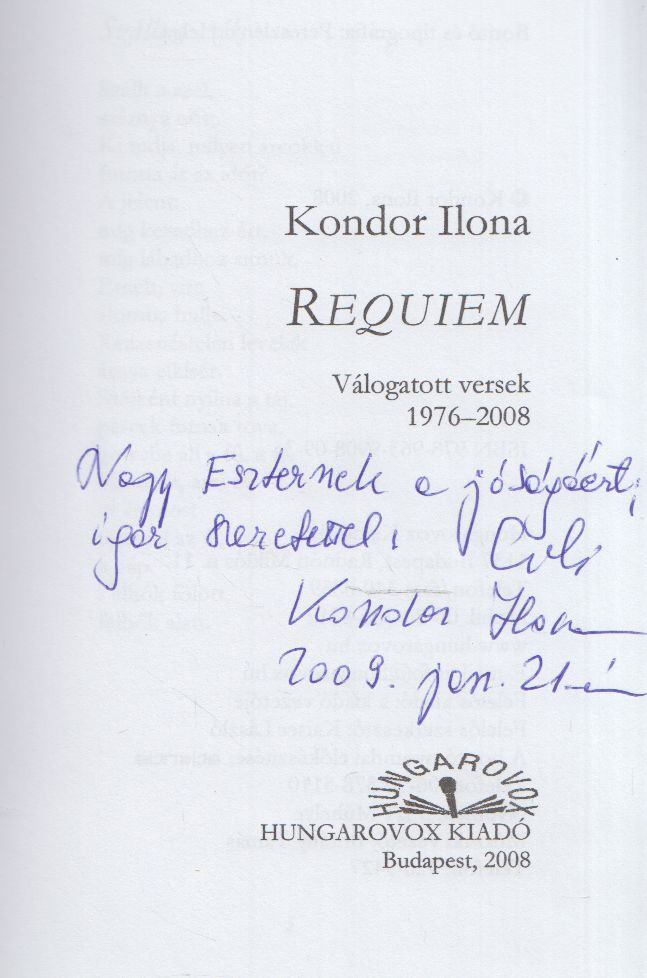 Kondor Ilona
REQUIEM
Válogatott versek
1976–2008
Nagy Eszternek a jóságáért,
igaz szeretettel:
Kondor Ilona
2009. jan. 21-én
HUNGAROVOX
HUNGAROVOX KIADÓ
Budapest, 2008